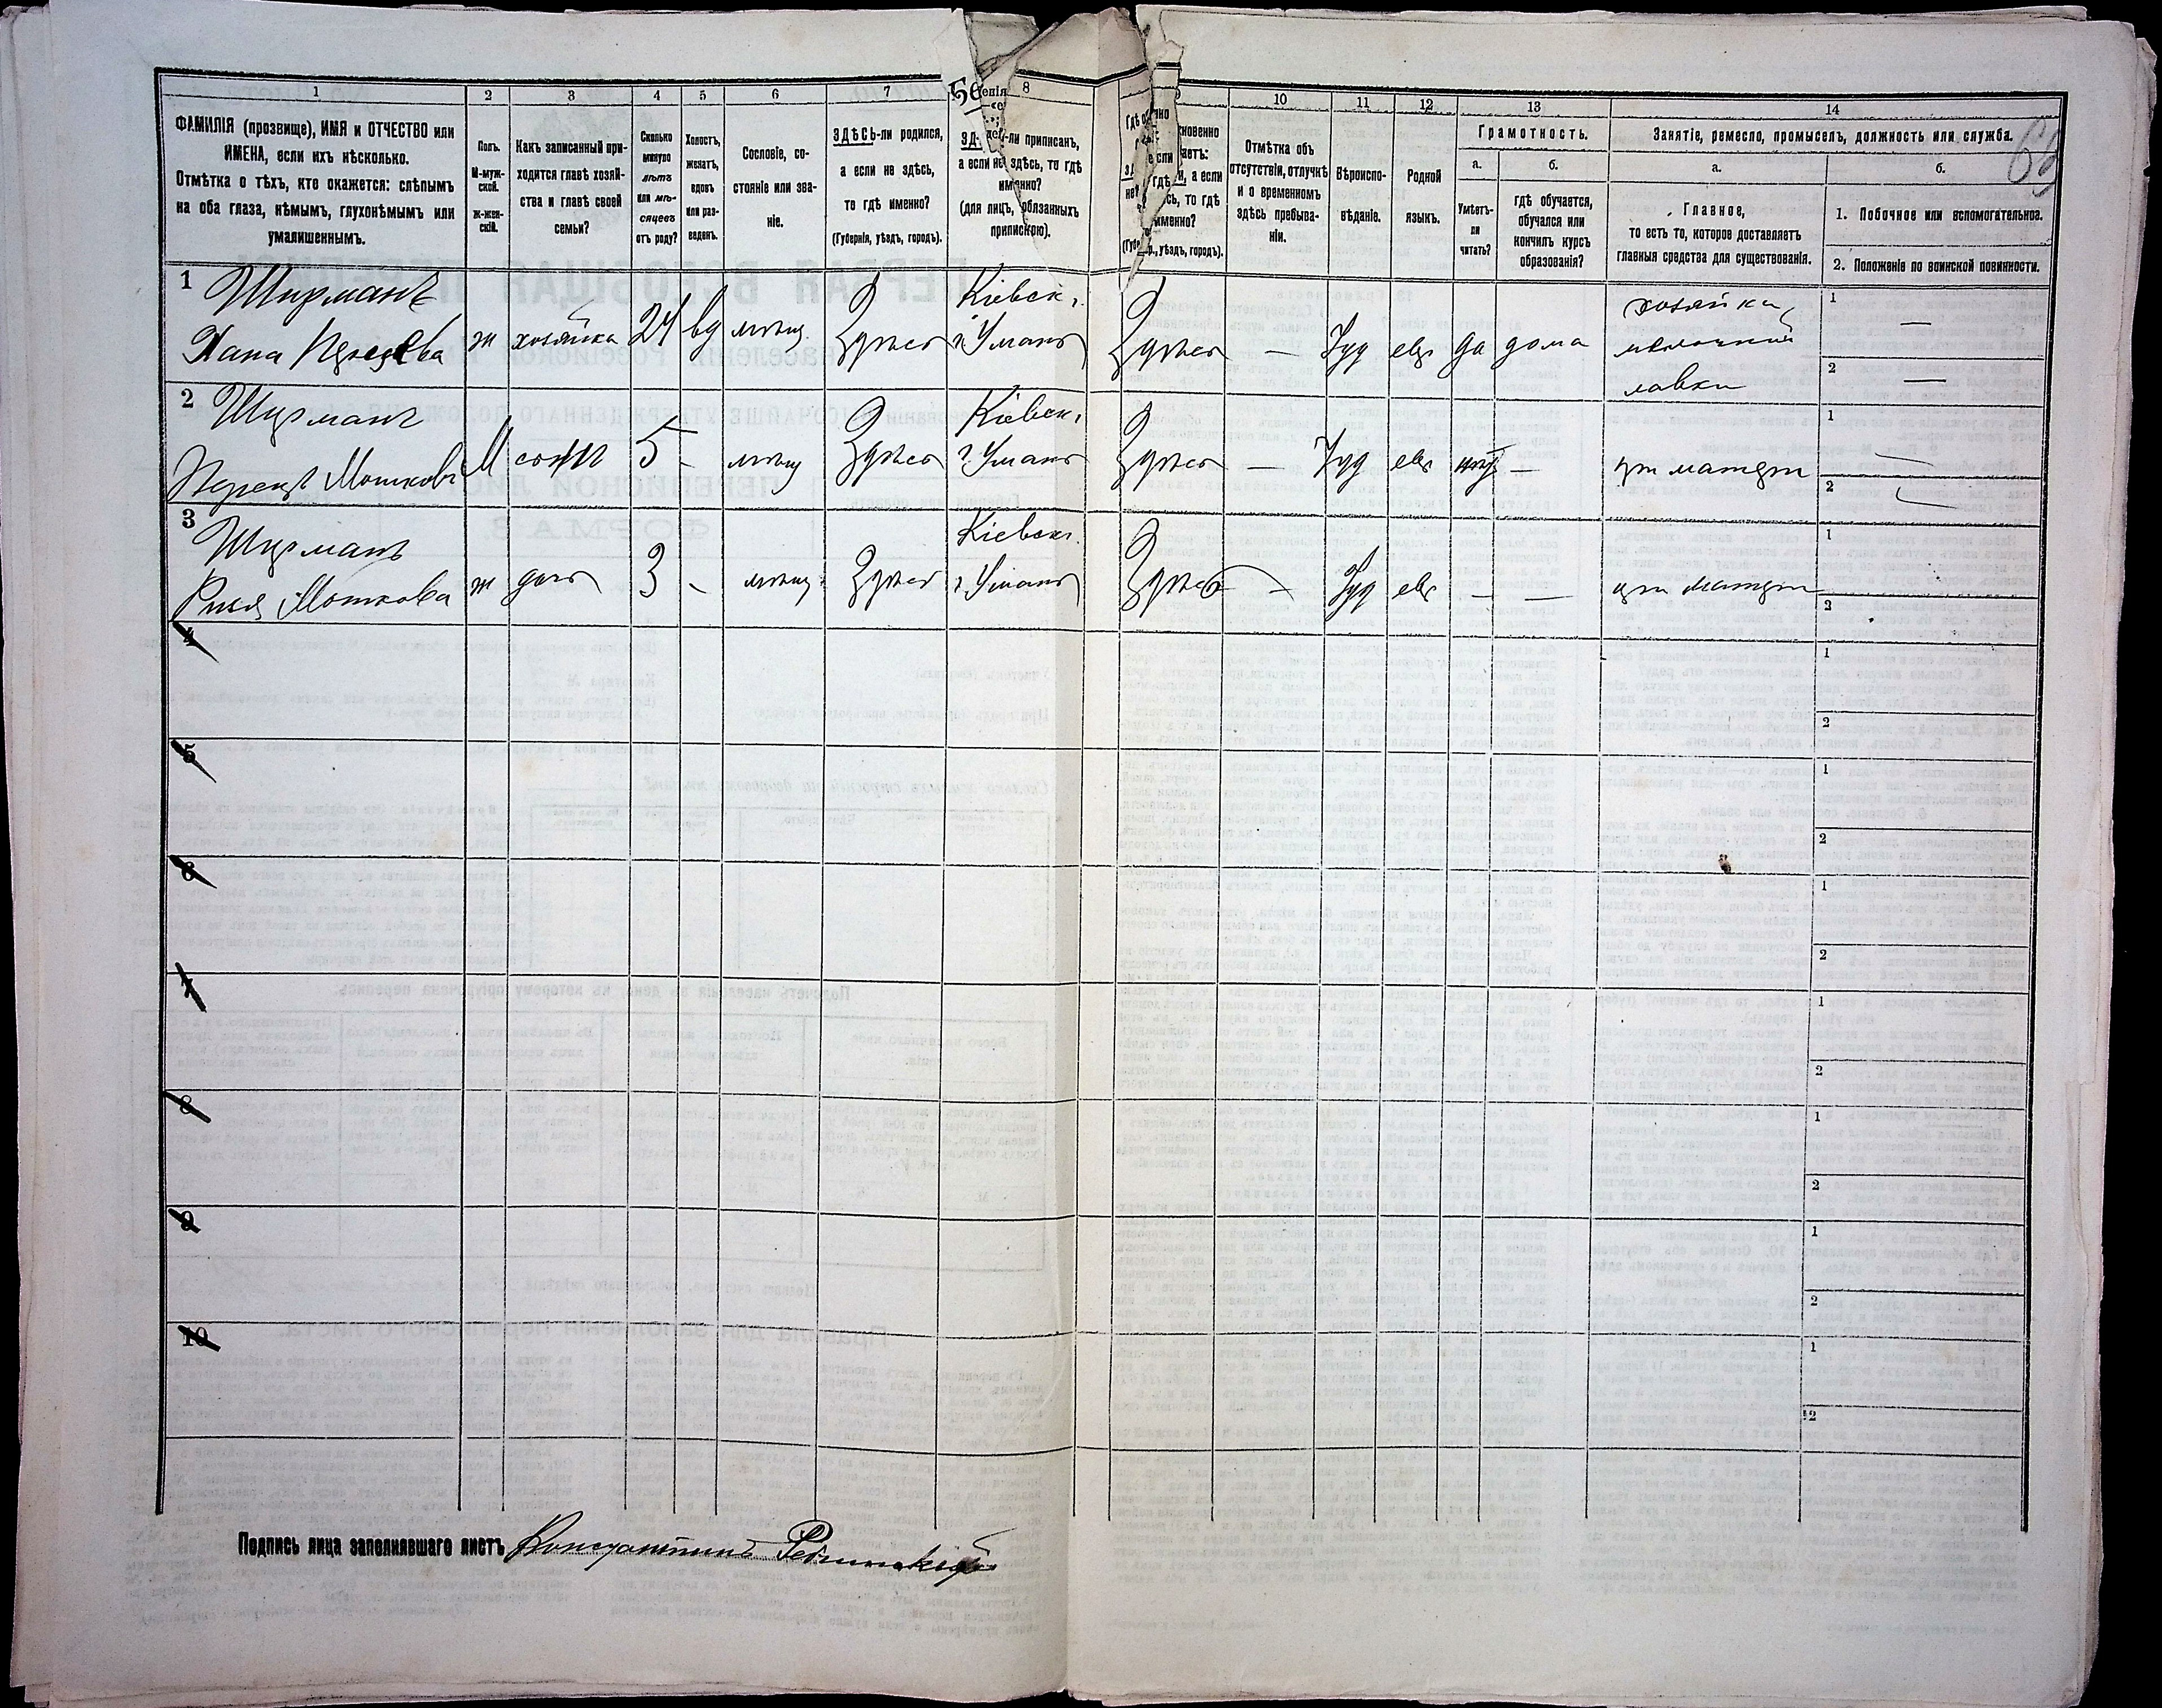 1
2
3
4
5
6
7
8
10
11
12
13
14
ФАМИЛІЯ (прозвище), ИМЯ и ОТЧЕСТВО или
ИМЕНА, если ихъ нѣсколько.
Отмѣтка о тѣхъ, кто окажется: слѣпымъ
на оба глаза, нѣмымъ, глухонѣмымъ или
умалишеннымъ.
Полъ.
М-муж-
ской.
ж-жен-
скій.
Какъ записанный при-
ходится главѣ хозяй-
ства и главѣ своей
семьи?
Сколько
минуло
лѣтъ
или мѣ-
сяцевъ
отъ роду?
Холостъ,
женатъ,
вдовъ
или раз-
веденъ.
Сословіе, со-
стояніе или зва-
ніе.
ЗДѢСЬ-ли родился,
а если не здѣсь,
то гдѣ именно?
(Губернія, уѣздъ, городъ).
-ли приписан,
а если не здѣсь, то гдѣ
именно?
(для лицъ, обязанныхъ
припискою).
а если
то гдѣ
именно?
уѣздъ, городъ).
Отмѣтка объ
отсутствіи, отлучкѣ
и о временномъ
здѣсь пребыва-
ніи.
Вѣроиспо-
вѣданіе.
Родной
языкъ.
Грамотность.
а.
б.
Умѣетъ-
ли
читать?
гдѣ обучается,
обучался или
кончилъ курсъ
образованія?
Занятіе, ремесло, промыселъ, должность или служба.
а.
б.
Главное,
то есть то, которое доставляетъ
главныя средства для существованія.
1. Побочное или вспомогательное.
2. Положеніе по воинской повинности.
1 Ширманъ Кіевск. хозяйка
Хана ж хозяйка 24 вд мѣщ Здѣсь г. Умань Здѣсь — Іуд евр да дома мелочной 1 —
лавки 2 —
2 Ширманъ Кіевск. 1
Мошковъ М сынъ 5 - мѣщ Здѣсь г. Умань Здѣсь — Іуд евр нѣтъ — при матери 2
3 Ширманъ Кіевск. 1
Мошкова ж дочь 3 - мѣщ Здѣсь г. Умань Здѣсь — Іуд евр — — при матери 2
4 1
2
5 1
2
6 1
2
7 1
2
8 1
2
9 1
2
10 1
2
Подпись лица заполнявшаго листъ Константинъ